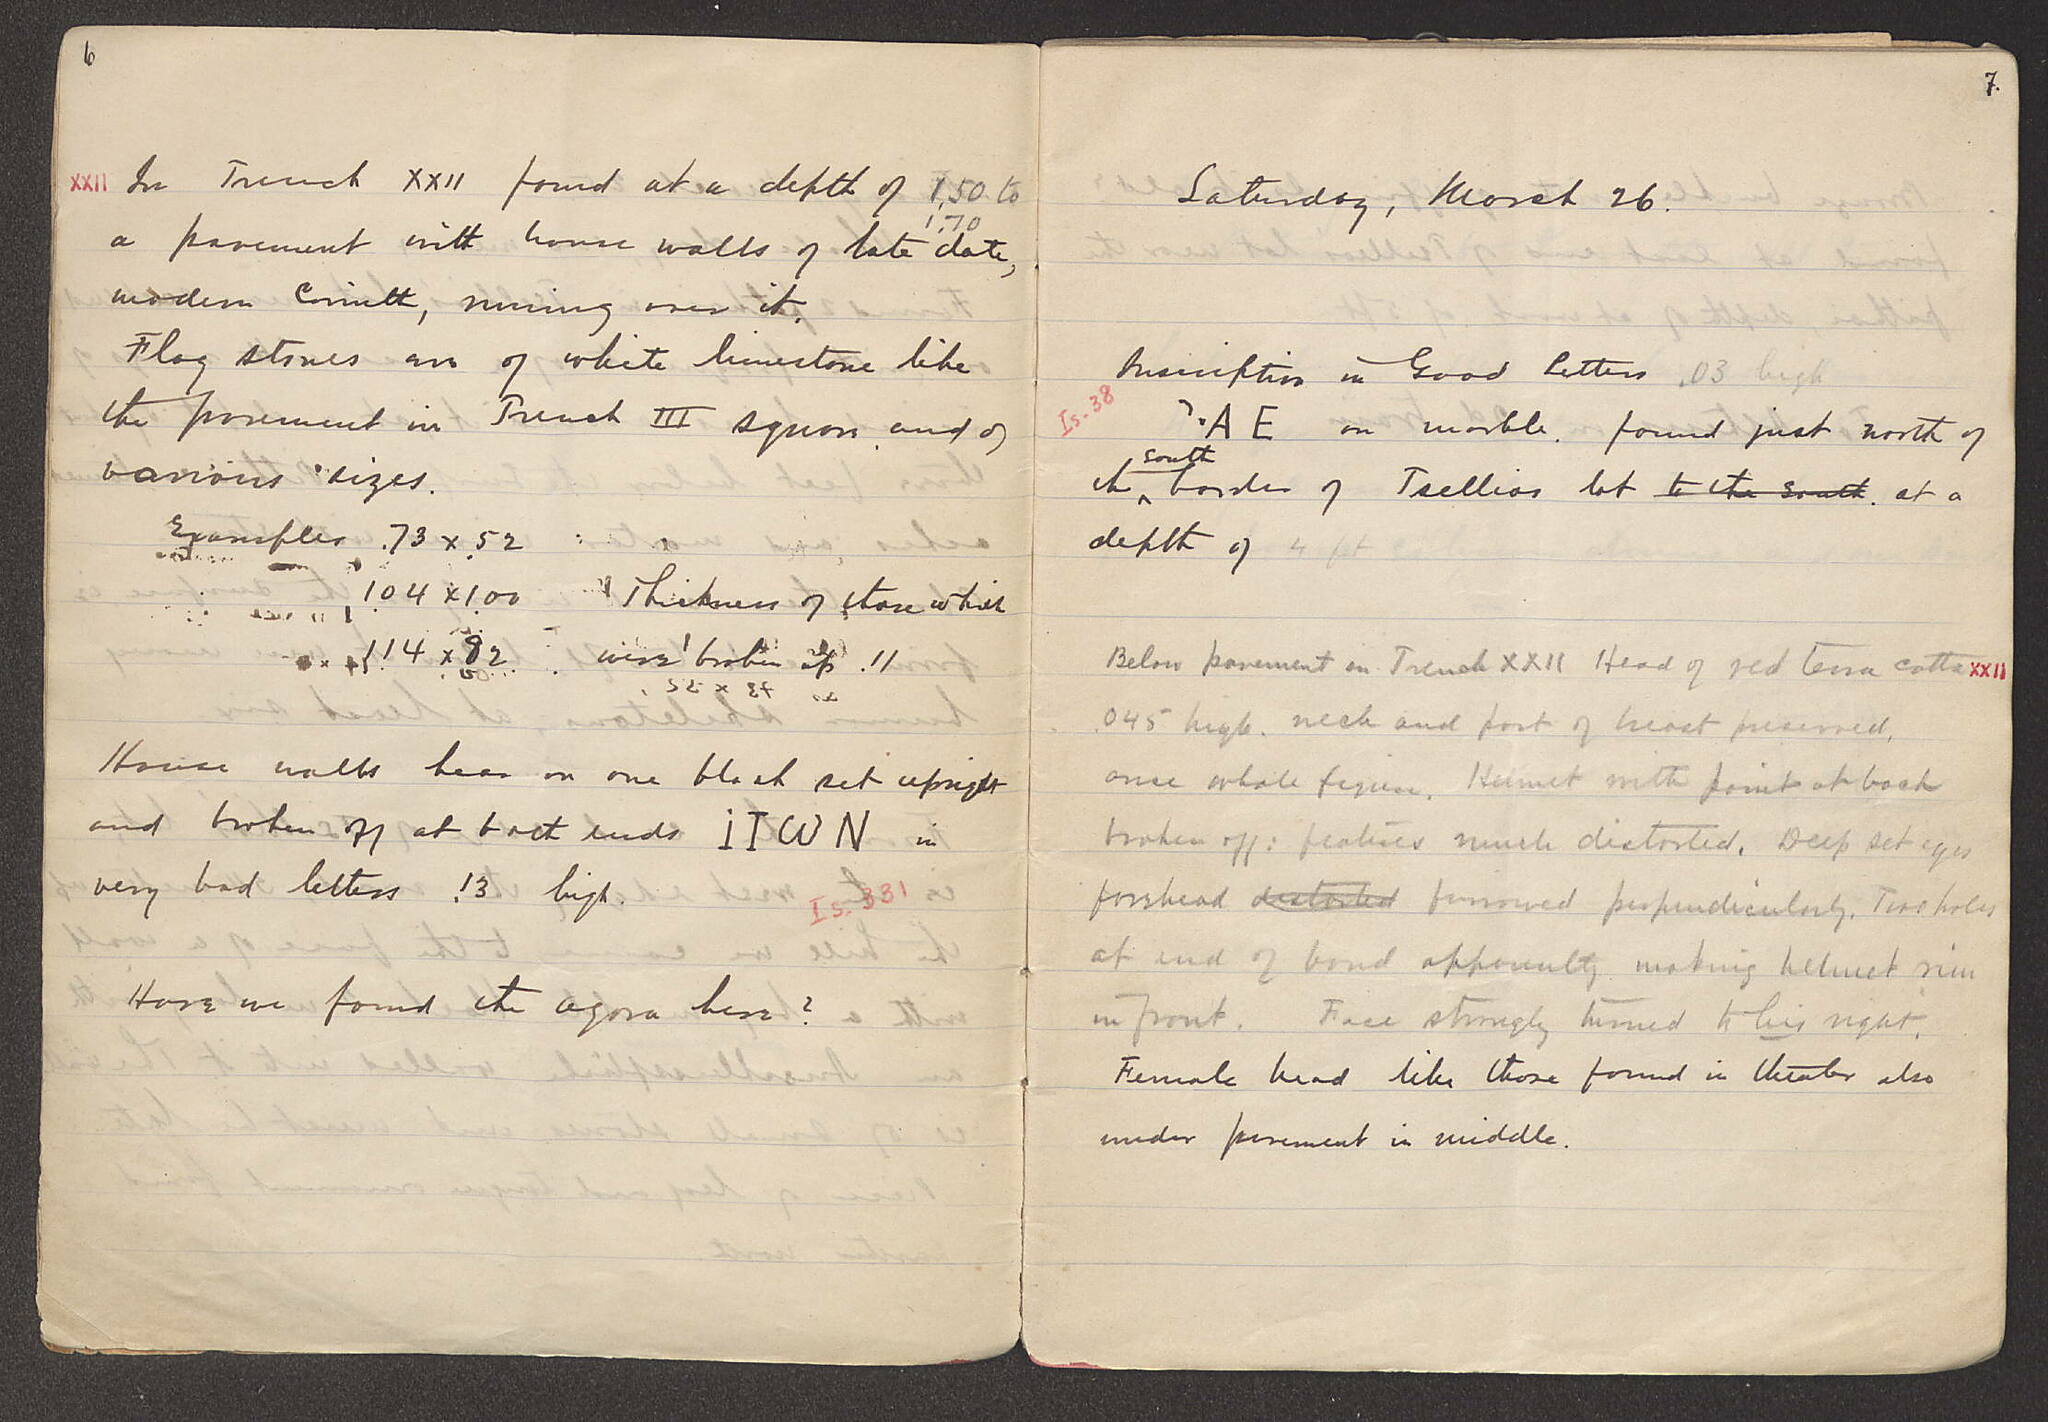 6
XXII In Trench XXII found at a depth of 1.50 to
1.70
a pavement with house walls of late date,
modern Corinth, running over it.
Flag stones are of white limestone like
the pavement in Trench III square and of
various sizes.
Examples .73 x .52
1.04 x 1.00 Thickness of those which
1.14 x .82 were broken up .11
House walls bear on one block set upright
and broken off at both ends ITωN in
very bad letters .13 high
Is. 331
Have we found the agora here?
7.
Saturday, March 26.
Inscription in Good letters .03 high
Is. 38
?·AE on marble. found just north of
south
the ^ border of Tsellios lot to the south. at a
depth of 4 ft
Below pavement in Trench XXII Head of red terra cotta XXII
.045 high. neck and part of breast preserved,
once whole figure. Helmet with point at back
broken off: features much distorted. Deep set eyes
forehead distorted furrowed perpendicularly. Two holes
at end of band apparently making helmet rim
in front. Face strongly turned to his right.
Female head like those found in theater also
under pavement in middle.